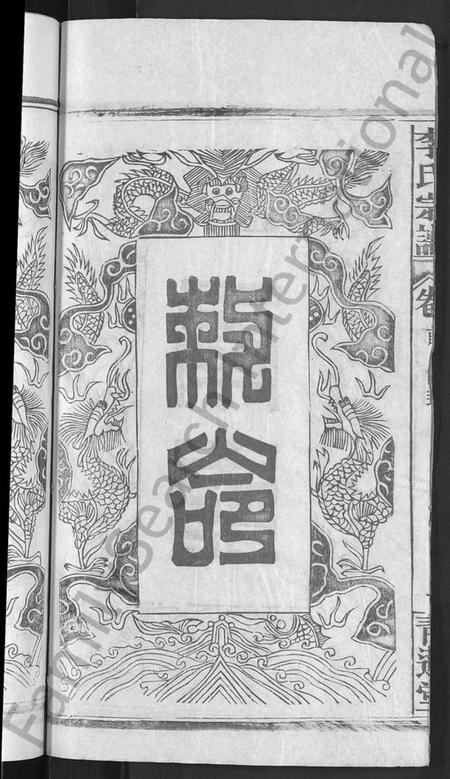 敕命
李氏宗譜
卷
FamilySearch International